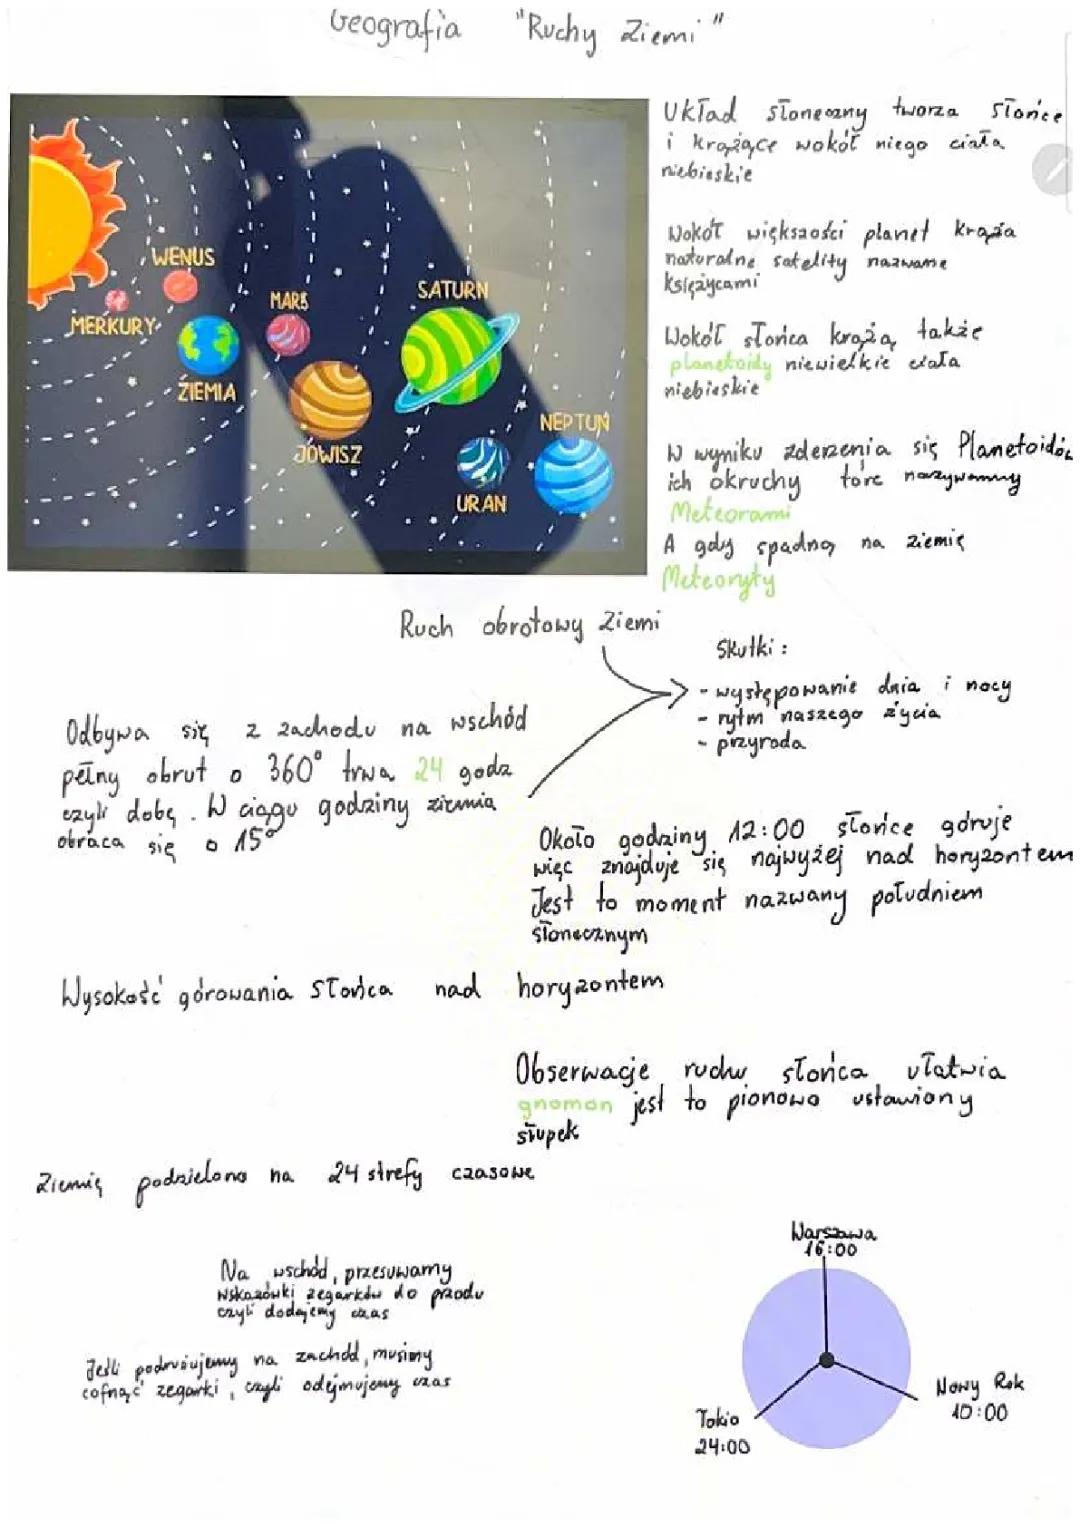 Geografia "Ruchy Ziemi"
Układ słoneczny tworza słońce
i krążące wokół niego ciała
niebieskie
Wokół większości planet krążą
naturalne satelity nazwane
księżycami
Wokół słońca krążą także
planetoidy niewielkie ciała
niebieskie
W wyniku zderzenia się Planetoidów
ich okruchy tore nazywamy
Meteorami
A gdy spadną na ziemię
Meteoryty
WENUS
MERKURY
ZIEMIA
MARS
JOWISZ
SATURN
URAN
NEPTUN
Ruch obrotowy Ziemi
Skutki:
- występowanie dnia i nocy
- rytm naszego życia
- przyroda
Odbywa się z zachodu na wschód
pełny obrut o 360° trwa 24 godz
czyli dobę. W ciągu godziny ziemia
obraca się o 15°
Około godziny 12:00 słońce góruje
więc znajduje się najwyżej nad horyzontem
Jest to moment nazwany południem
słonecznym
Wysokość górowania słońca nad horyzontem
Obserwacje ruchu słońca ułatwia
gnomon jest to pionowo ustawiony
słupek
Ziemię podzielono na 24 strefy czasowe
Na wschód, przesuwamy
wskazówki zegarków do przodu
czyli dodajemy czas
Jeśli podruóujemy na zachód, musimy
cofnąć zegarki, czyli odejmujemy czas
Warszawa
16:00
Tokio
24:00
Nowy Rok
10:00